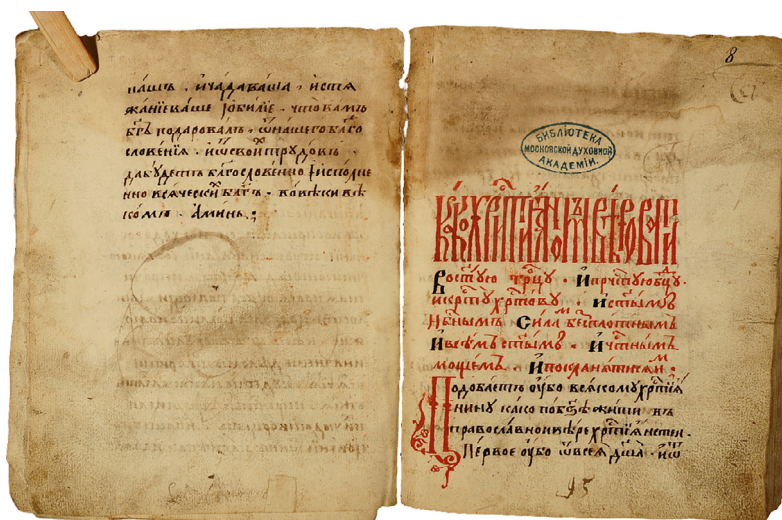 нашъ . ичадаваша , истѧ
жанїеваше їобилїе . чтовамъ
бг҃ъ подаровалъ . ѿнашего бл҃го
словенїѧ . иѿ свои трудовъ .
дабудетъ благословенно їисполне
нно всѧчески бл҃гъ . вовѣки вѣ
комъ . Аминь ;
8
БИБЛІОТЕКА
МОСКОВСКОЙ ДУХОВНОЙ
АКАДЕМІИ.
Востую трⷪцу . Ипрчⷭтуюбцⷣу .
икрⷭту хрⷭтову . истымъ
Нбⷭнымъ Сиⷧламъ бесплотнымъ
Ивсѣмъ стымъ . Ичⷭтнымъ
мощемъ . Ипокланѧтисѧ имⷨ :
Подобаетъ оубо всѧкому хрⷭтїѧ
нину како побзѣ жити въ
православной вѣре хрⷭтїѧнстей .
Первое оубо ѿвсеѧ дш҃а . иѿ